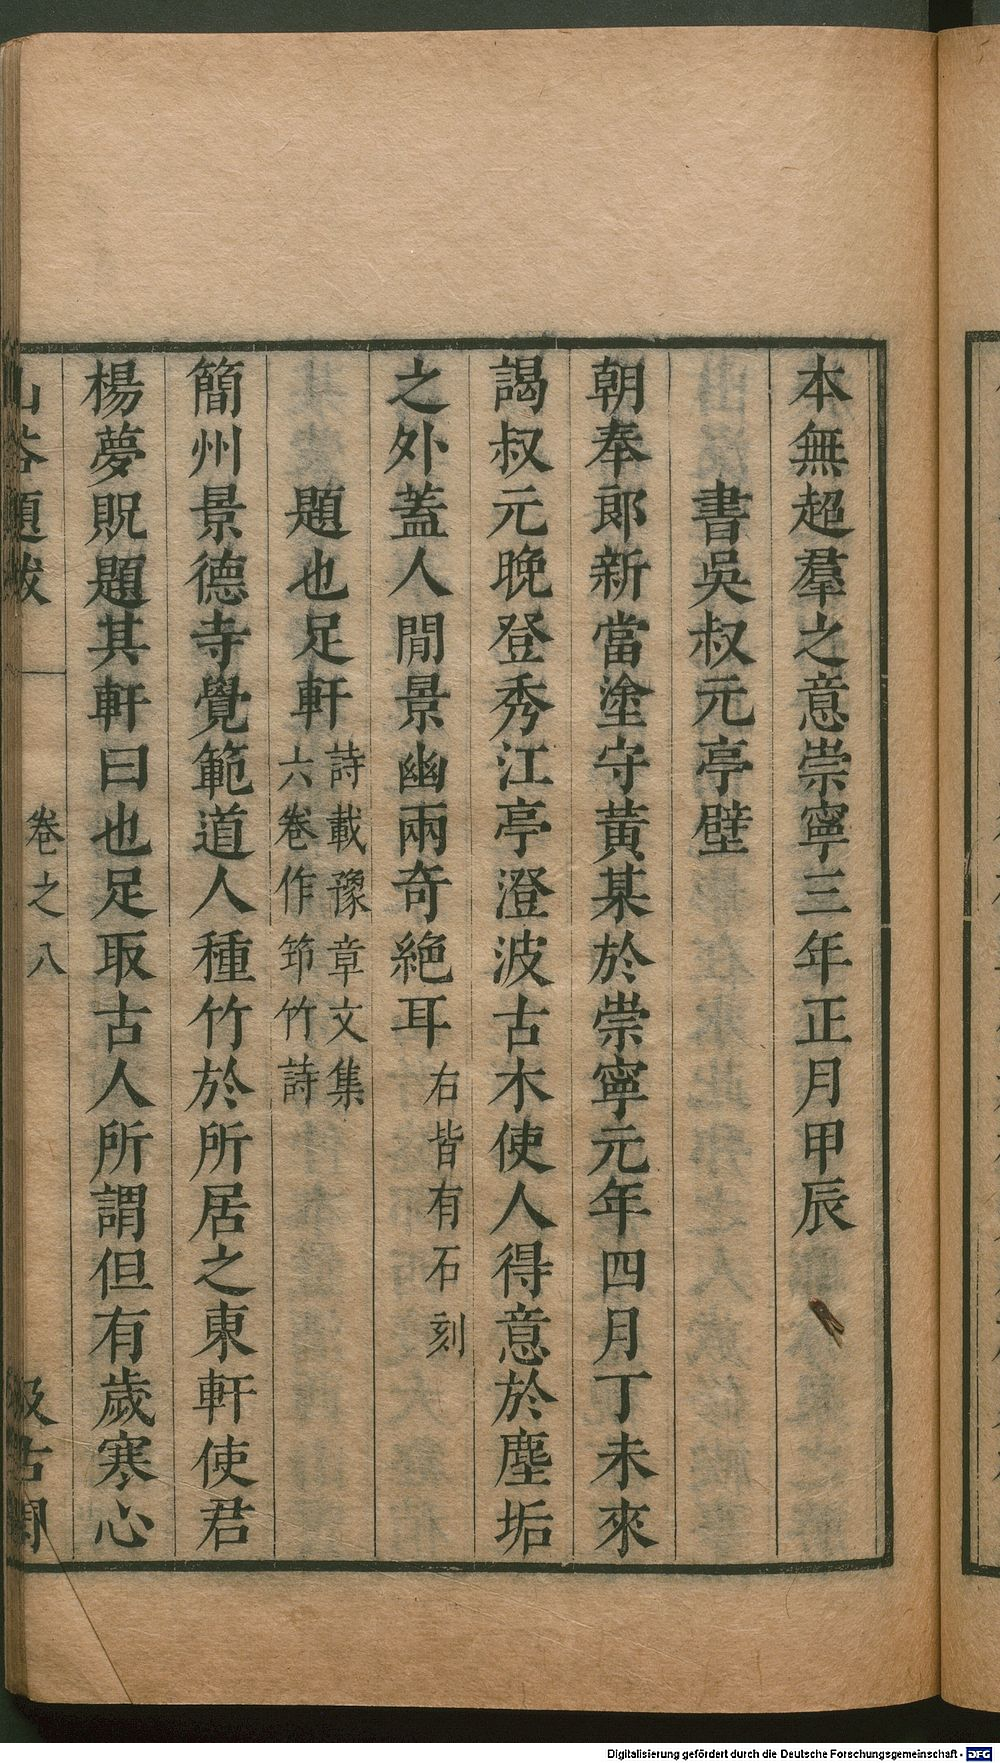 本無超羣之意崇寧三年正月甲辰
書吳叔元亭壁
朝奉郎新當塗守黃某於崇寧元年四月丁未來
謁叔元晚登秀江亭澄波古木使人得意於塵垢
之外蓋人閒景幽兩奇絕耳右皆有石刻
題也足軒詩載豫章文集
六卷作筇竹詩
簡州景德寺覺範道人種竹於所居之東軒使君
楊夢貺題其軒曰也足取古人所謂但有歲寒心
山谷題跋
卷之八
汲古閣
Digitalisierung gefördert durch die Deutsche Forschungsgemeinschaft - DFG